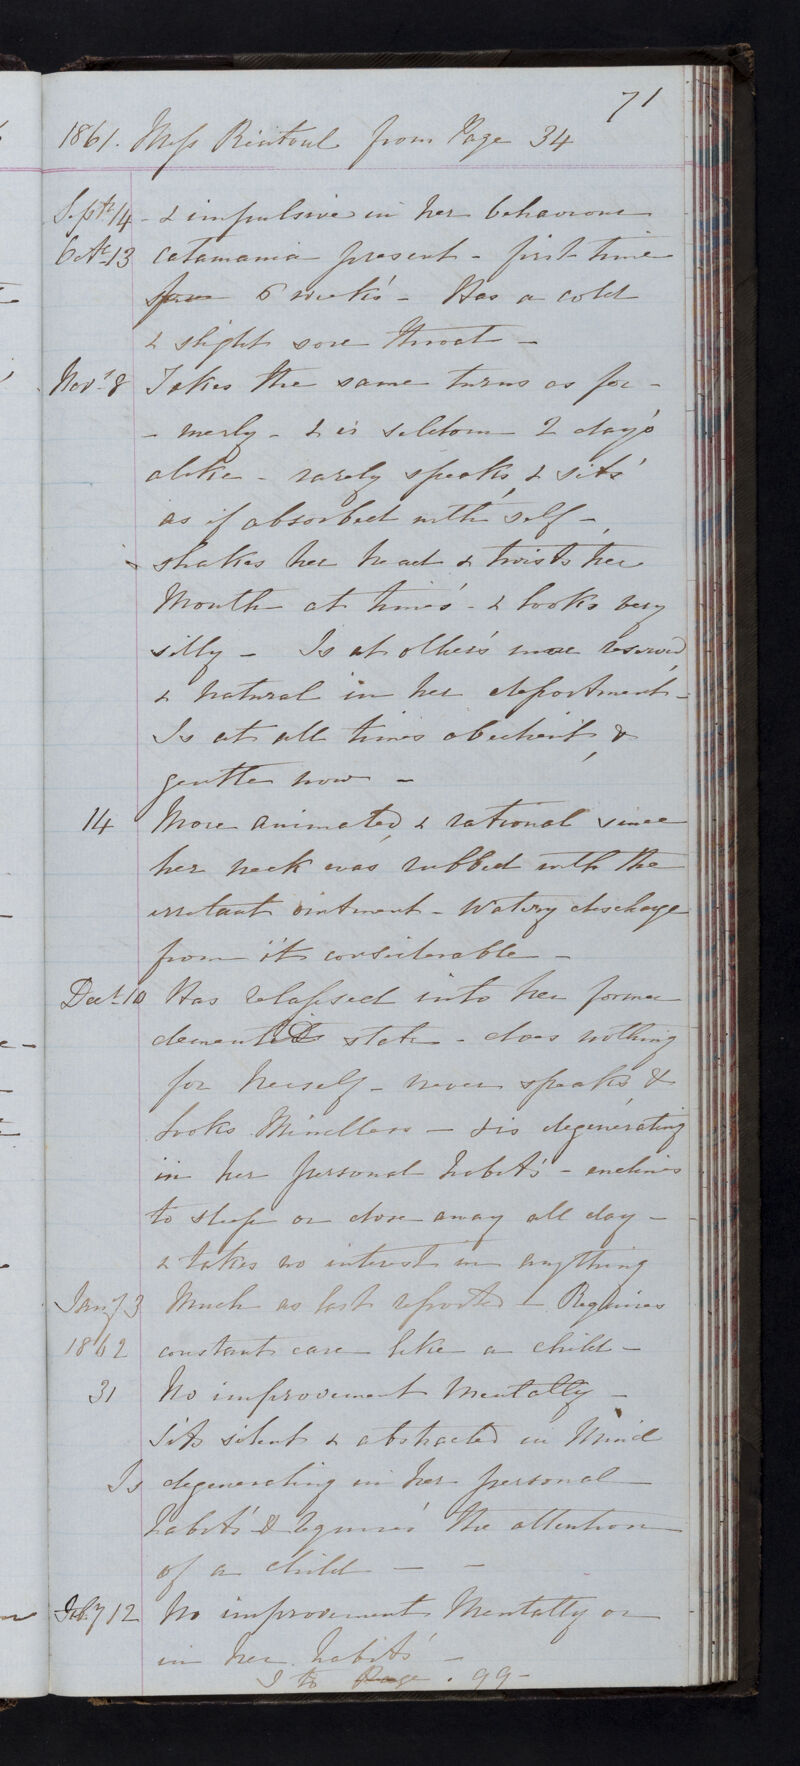 71
1861. Miss Rintoul from Page 34
Septr 14 - & impulsive in her behaviour
Octr 13 Catamania present - first time
for 6 weeks - Has a cold
& slight sore throat -
Novr 8 Takes the same turns as for -
- merly - & is seldom 2 days
alike - rarely speaks, & sits
as if absorbed with self -
shakes her head & twists her
Mouth at times - & looks very
silly - Is at others more reserved
& natural in her deportment -
Is at all times obedient, &
gentle now -
14 More animated, & rational since
her neck was rubbed with the
irritant ointment - Watery discharge
from it considerable -
Decr 10 Has relapsed into her former
demented state - does nothing
for herself - never speaks, &
looks Mindless - & is degenerating
in her personal habits - enclines
to sleep or dose away all day -
& takes no interest in anything
Jany 3 Much as last reported - Requires
1862 constant care like a child -
31 No improvement Mentally -
Sits silent & abstracted in Mind
Is degenerating in her personal
habits & requires the attention
of a child - -
Feby 12 No improvement Mentally or
in her habits -
to Page . 99 -